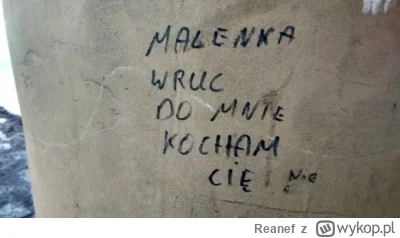 MALENKA
WRUC
DO MNIE
KOCHAM
CIĘ NIE
Reanef z wykop.pl